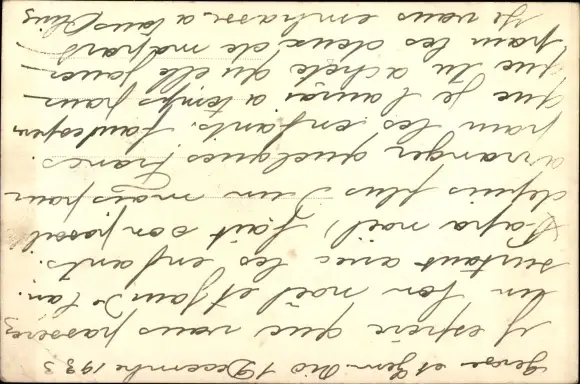 Decembre 1933
J espère que vous passerez
un bon noël et jour de l'an.
surtout avec les enfants.
Papa noël, fait son possible
depuis plus d'un mois pour
arranger quelques francs.
pour les enfants. faut espérer
que je l'aurai a temps pour
que tu achete qu elle jouer
pour les deux. de ma part
Je vous embrasse. a tous